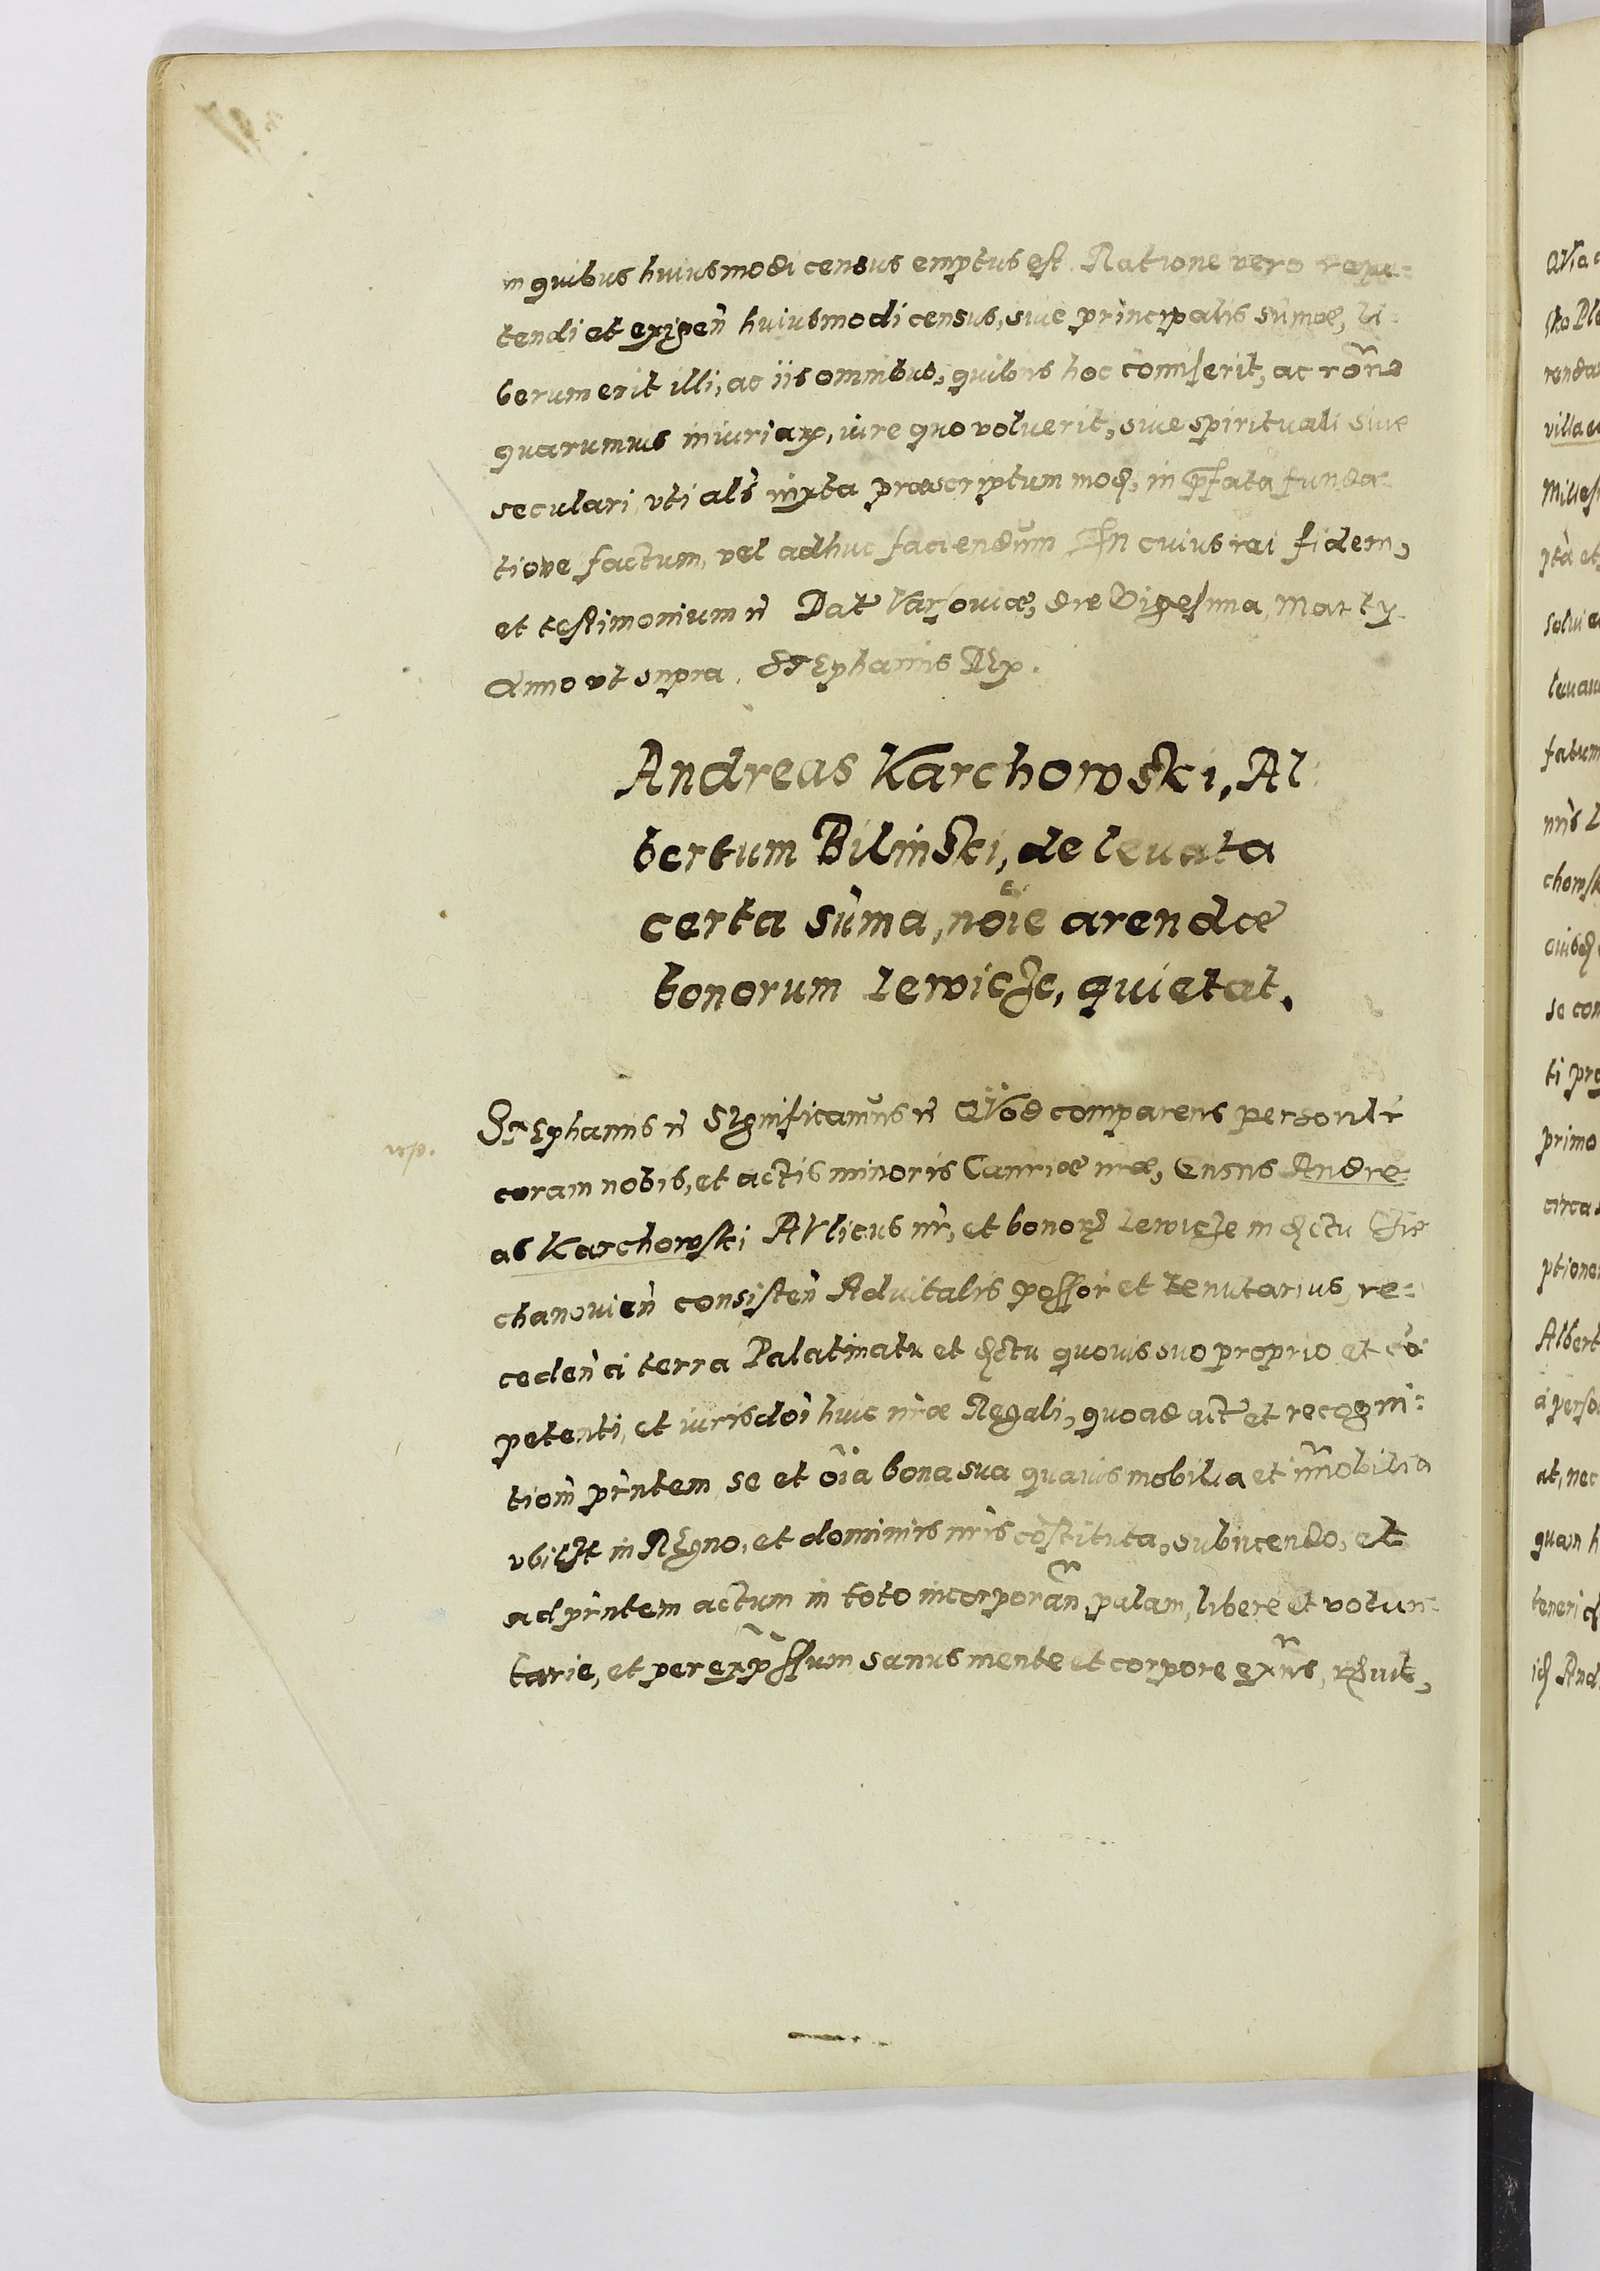 in quibus huiusmodi census emptus est. Ratione vero repe-
tendi et exigen̄ huiusmodi census, siue principalis sum̄æ, li-
berum erit illi, ac iis omnibus, quibus hoc com̄iserit, ac rōne
quarumuis iniuriarꝝ, iure quo voluerit, siue spirituali siue
seculari, vti als̄ iuxta præscriptum mod, in p̄fata funda-
tione factum, vel adhuc faciendum. In cuius rei fidem,
et testimonium rc̄ Dat̄ Varsouiæ, die Vigesima, Marty
Anno vt supra. Stephanus Rex.
Andreas Karchowski, Al
bertum Bilinski, de leuata
certa sum̄a, nōie arendæ
bonorum Lewicze, quietat.
Stephanus rc̄ Significamus rc̄ QVod comparens personlr̄
coram nobis, et actis minoris Canc̄riæ nr̄æ, Gnsus Andre-
as Karchowski AVlicus nr̄, et bonorꝝ Lewicze in dſctu Cie
chanouien̄ consisten̄ Aduitalis possor̄ et tenutarius, re-
ceden̄ a terra Palatinatu et dſctu quouis suo proprio et cō
petenti, et iurisdōi huic nr̄æ Regali, quoad act̄ et recogni-
tiom̄ prn̄tem se et ōia bona sua quæuis mobilia et im̄obilia
vbilꝫt in Regno, et dominiis nr̄is cōstituta, subiiciendo, et
ad prn̄tem actum in toto incorporan̄, palam, libere et volun-
tarie, et per exp̄ssum, sanus mente et corpore exn̄s,